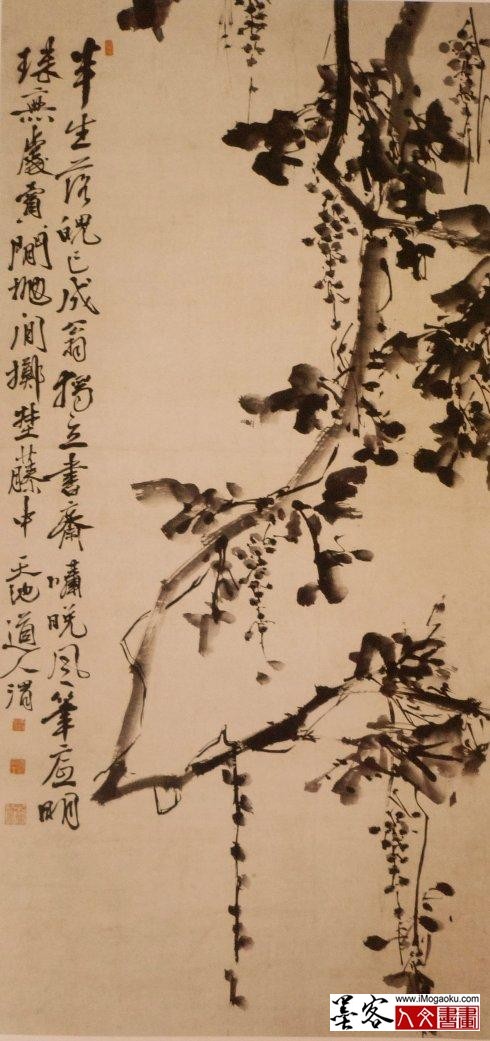 半生落魄已成翁獨立書齋嘯晚風筆底明
珠無處賣閒拋閒擲埜藤中 天池道人渭
墨客
www.iMogaoku.com
人文書畫